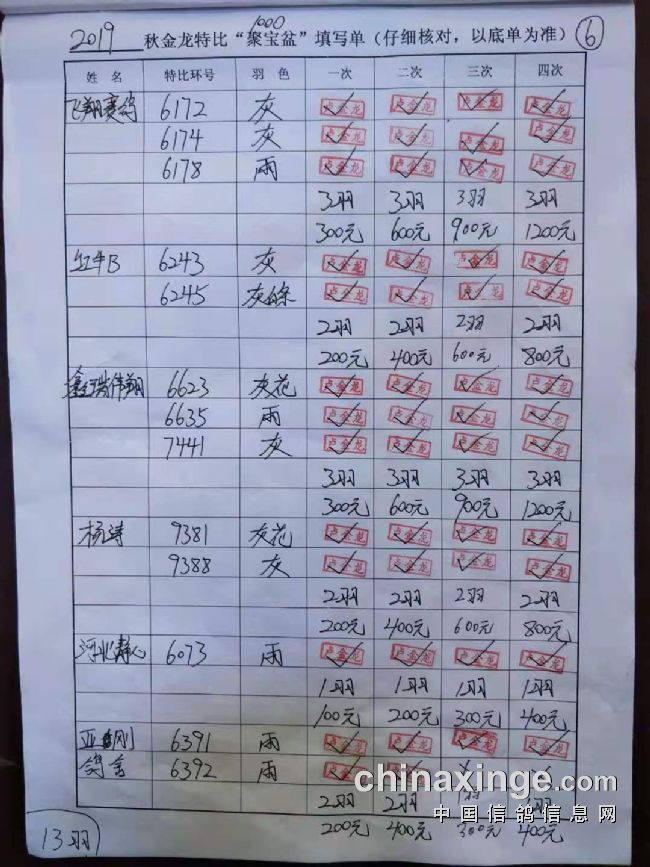 2019 秋金龙特比“聚宝盆”填写单（仔细核对，以底单为准） 1000 ⑥
姓 名 特比环号 羽 色 一次 二次 三次 四次
飞翔赛鸽 6172 灰 卢金龙 卢金龙 卢金龙 卢金龙
6174 灰 卢金龙 卢金龙 卢金龙 卢金龙
6178 雨 卢金龙 卢金龙 卢金龙 卢金龙
3羽 3羽 3羽 3羽
300元 600元 900元 1200元
红牛B 6243 灰 卢金龙 卢金龙 卢金龙 卢金龙
6245 灰白条 卢金龙 卢金龙 卢金龙 卢金龙
2羽 2羽 2羽 2羽
200元 400元 600元 800元
鑫瑞伟翔 6623 灰花 卢金龙 卢金龙 卢金龙 卢金龙
6635 雨 卢金龙 卢金龙 卢金龙 卢金龙
7441 灰 卢金龙 卢金龙 卢金龙 卢金龙
3羽 3羽 3羽 3羽
300元 600元 900元 1200元
杨涛 9381 灰花 卢金龙 卢金龙 卢金龙 卢金龙
9388 灰 卢金龙 卢金龙 卢金龙 卢金龙
2羽 2羽 2羽 2羽
200元 400元 600元 800元
河北静心 6073 雨 卢金龙 卢金龙 卢金龙 卢金龙
1羽 1羽 1羽 1羽
100元 200元 300元 400元
亚刚 6391 雨 卢金龙 卢金龙 卢金龙 卢金龙
鸽舍 6392 雨 卢金龙 卢金龙
2羽 2羽 1羽 1羽
200元 400元 300元 400元
13羽
chinaxinge.com
中国信鸽信息网